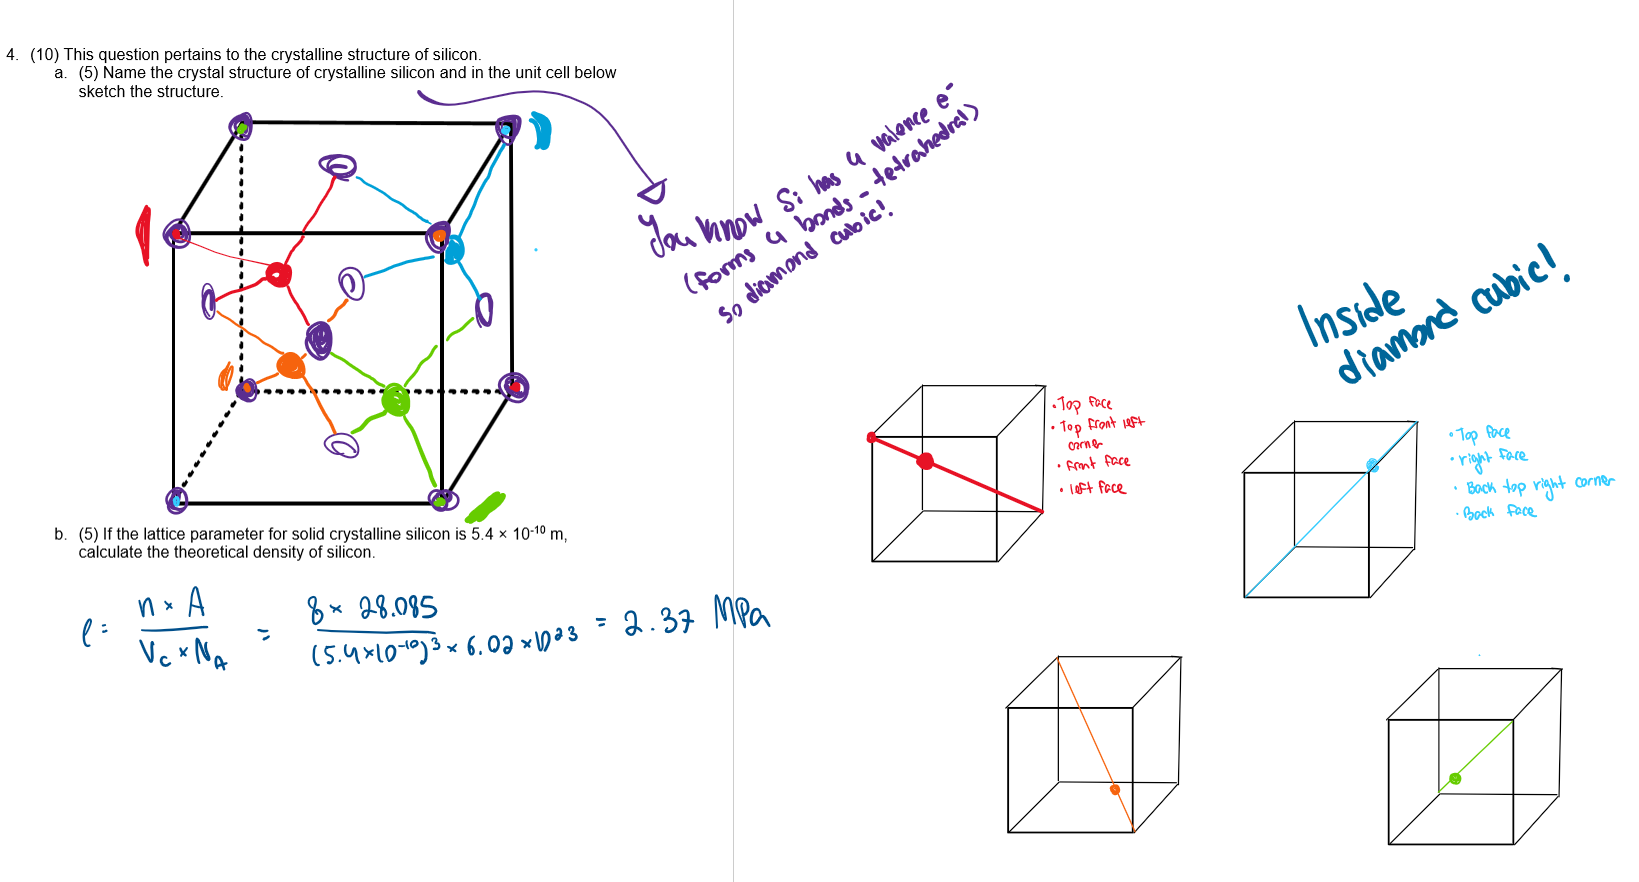 4. (10) This question pertains to the crystalline structure of silicon.
a. (5) Name the crystal structure of crystalline silicon and in the unit cell below
sketch the structure.
You know Si has 4 valence e⁻
(forms 4 bonds - tetrahedral)
so diamond cubic!
Inside
diamond cubic!
• Top face
• Top front left
corner
• front face
• left face
• Top face
• right face
• Back top right corner
• Back face
b. (5) If the lattice parameter for solid crystalline silicon is 5.4 × 10⁻¹⁰ m,
calculate the theoretical density of silicon.
ρ = n × A / V_C × N_A = 8 × 28.085 / (5.4×10⁻¹⁰)³ × 6.02 × 10²³ = 2.37 MPa